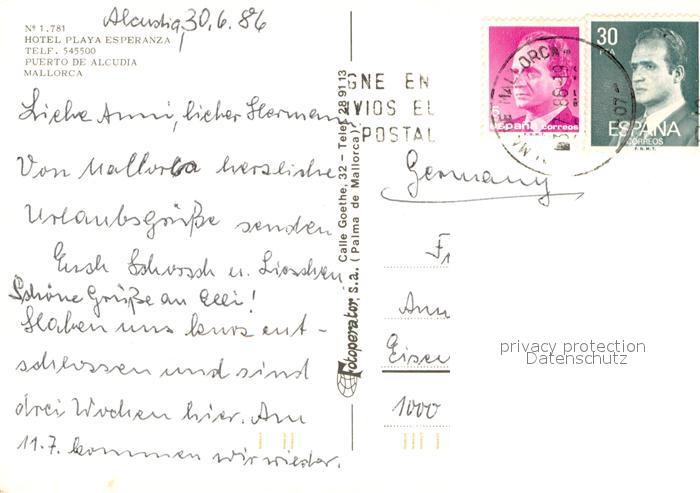 Alcudia, 30.6.86
Nº 1.781
HOTEL PLAYA ESPERANZA
TELF. 545500
PUERTO DE ALCUDIA
MALLORCA
Liebe Anni, lieber Hermann
Von Mallorca herzliche
Urlaubsgrüße senden
Euch Schorsch u. Lieschen
Schöne Grüße an Elli!
Haben uns kurz ent-
schlossen und sind
drei Wochen hier. Am
11.7. kommen wir wieder.
Fotoperator, s.a. Calle Goethe, 32 – Telef. 28 91 13
(Palma de Mallorca)
GNE EN
VIOS EL
POSTAL
MALLORCA
5
españa correos
30
PTA
ESPAÑA
CORREOS
F.N.M.T.
Germany
F
Ann
Eisen
1000
privacy protection
Datenschutz